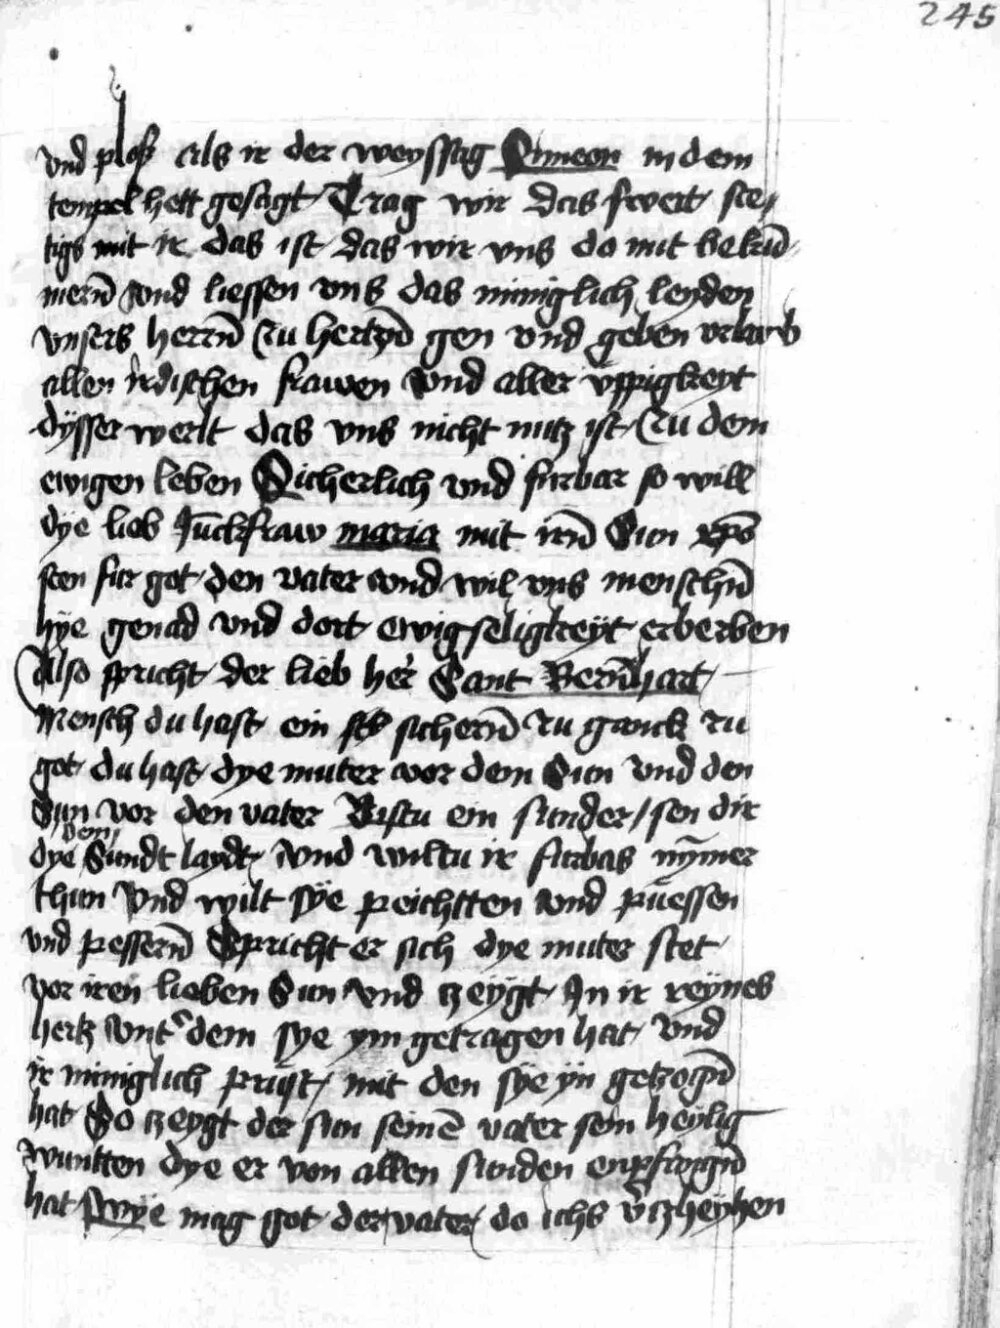 245
vnd ploß als ir der weyssag Simeon in dem
tempel hett gesagt Trag wir das swert ste/
tigs mit ir das ist das wir vns do mit bekum̄
mern̄ vnd liessen vns das inniglich leyden
vnsers herrn̄ zu hertzn̄ gen vnd geben vrlawb
allen irdischen frawen vnd aller vppigkeyt
dÿsser werlt das vns nicht nutz ist zu dem
ewigen leben Sicherlich vnd furbar so will
dye lieb Juckfraw maria mit irn̄ Sun xp̄o
sten fur got den vater vnd wil vns menschn̄
hÿe genad vnd dort ewigseligkeÿt erberben
Also spricht der lieb her Sant Bern̄hart
Mensch du hast ein sichern̄ zu ganck zu
got du hast dye muter vor dem Sun vnd den
Sun vor den vater Bistu ein sunder / sen dir
dein
dye Sundt laydt vnd wiltu ir furbas nȳmer
thun vnd wilt sÿe peichtten vnd puessen
vnd pessern̄ Spricht er sich dye muter stet
vor iren lieben Sun vnd tzeÿgt Jn ir reÿnes
hertz vnt' dem sÿe ym getragen hat vnd
ir inniglich prüst / mit den sÿe ÿn getzogn̄
hat So tzeygt der sun seinē vater sein heÿlig
wuntten dye er von allen sunden enpfangn̄
hat Wÿe mag got der vater do ichs v'tzheyhen